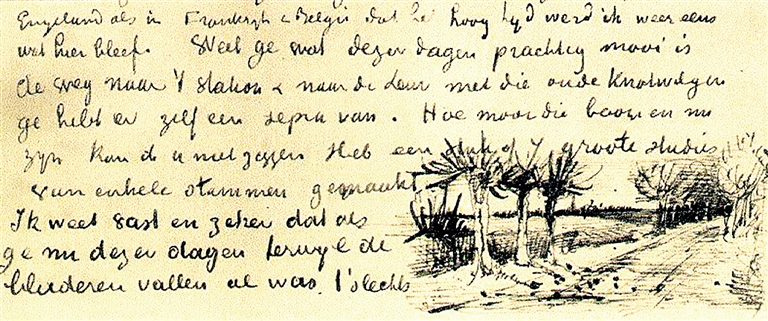 Engeland als in Frankrijk & Belgie dat het hoog tijd werd ik weer eens
wat hier bleef. Weet ge wat dezer dagen prachtig mooi is
de weg naar 't station & naar de Leur met die oude knotwilgen
ge hebt er zelf een sepia van. Hoe mooi die boomen nu
zijn kan ik u niet zeggen Heb een stuk of 7 groote studies
van enkele stammen gemaakt
Ik weet vast en zeker dat als
ge nu dezer dagen terwijl de
bladeren vallen al was 't slechts